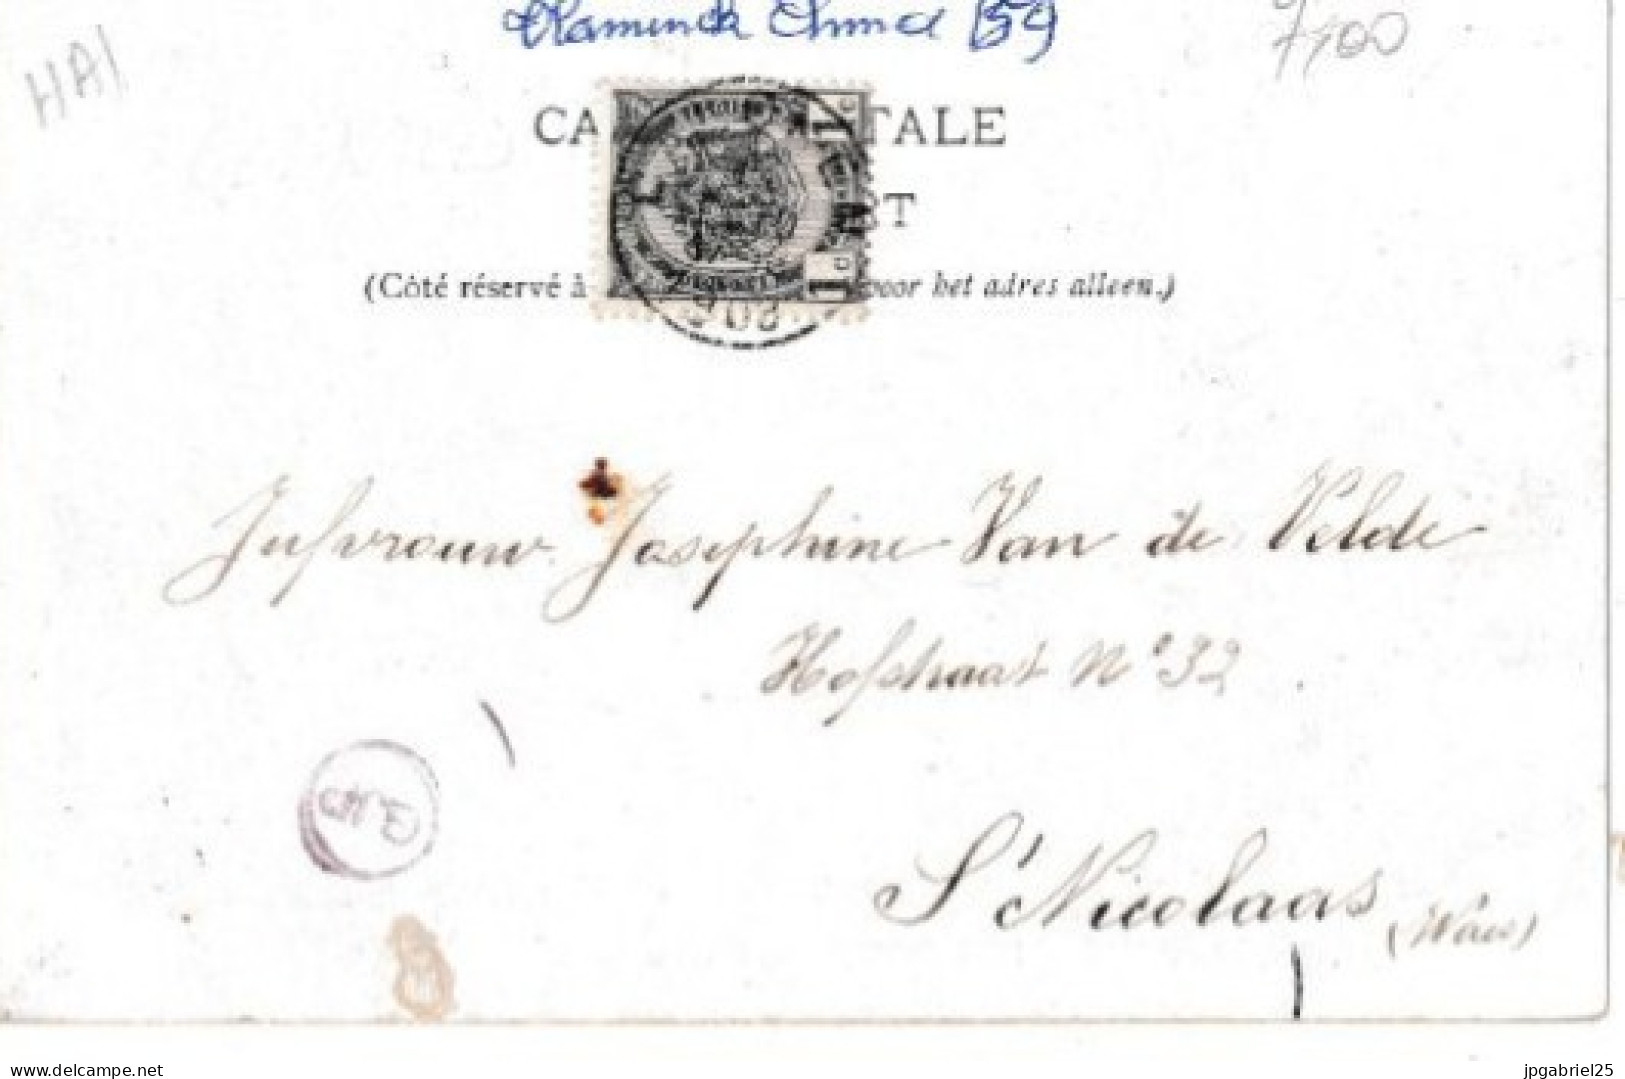 Vlaminck Anna 59
7,00
HAI
CA TALE
(Côté réservé à voor het adres alleen.)
Jufvrouw Josephine Van de Velde
Hofstraat N° 32
St Nicolaas (Waes)
www.delcampe.net
jpgabriel25